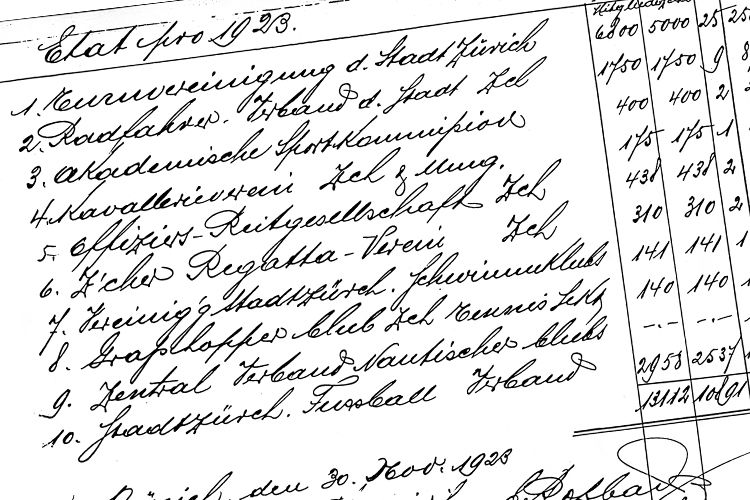 Etat pro 1923.
1. Turnvereinigung d. Stadt Zürich 6800 5000 25
2. Radfahrer-Verband d. Stadt Zch 1750 1750 9
3. Akademische Sportkommission 400 400 2
4. Kavallerieverein Zch & Umg. 175 175 1
5. Offiziers-Reitgesellschaft Zch 438 438 2
6. Z'cher Regatta-Verein Zch 310 310 2
7. Vereinig'g Stadtzürch. Schwimmklubs 141 141 1
8. Grasshopper Club Zch Tennis Sekt 140 140 1
9. Zentral Verband Nautischer Clubs -.- -.-
10. Stadtzürch. Fussball Verband 2958 2537
13112 10891
Zürich, den 30. Nov. 1923